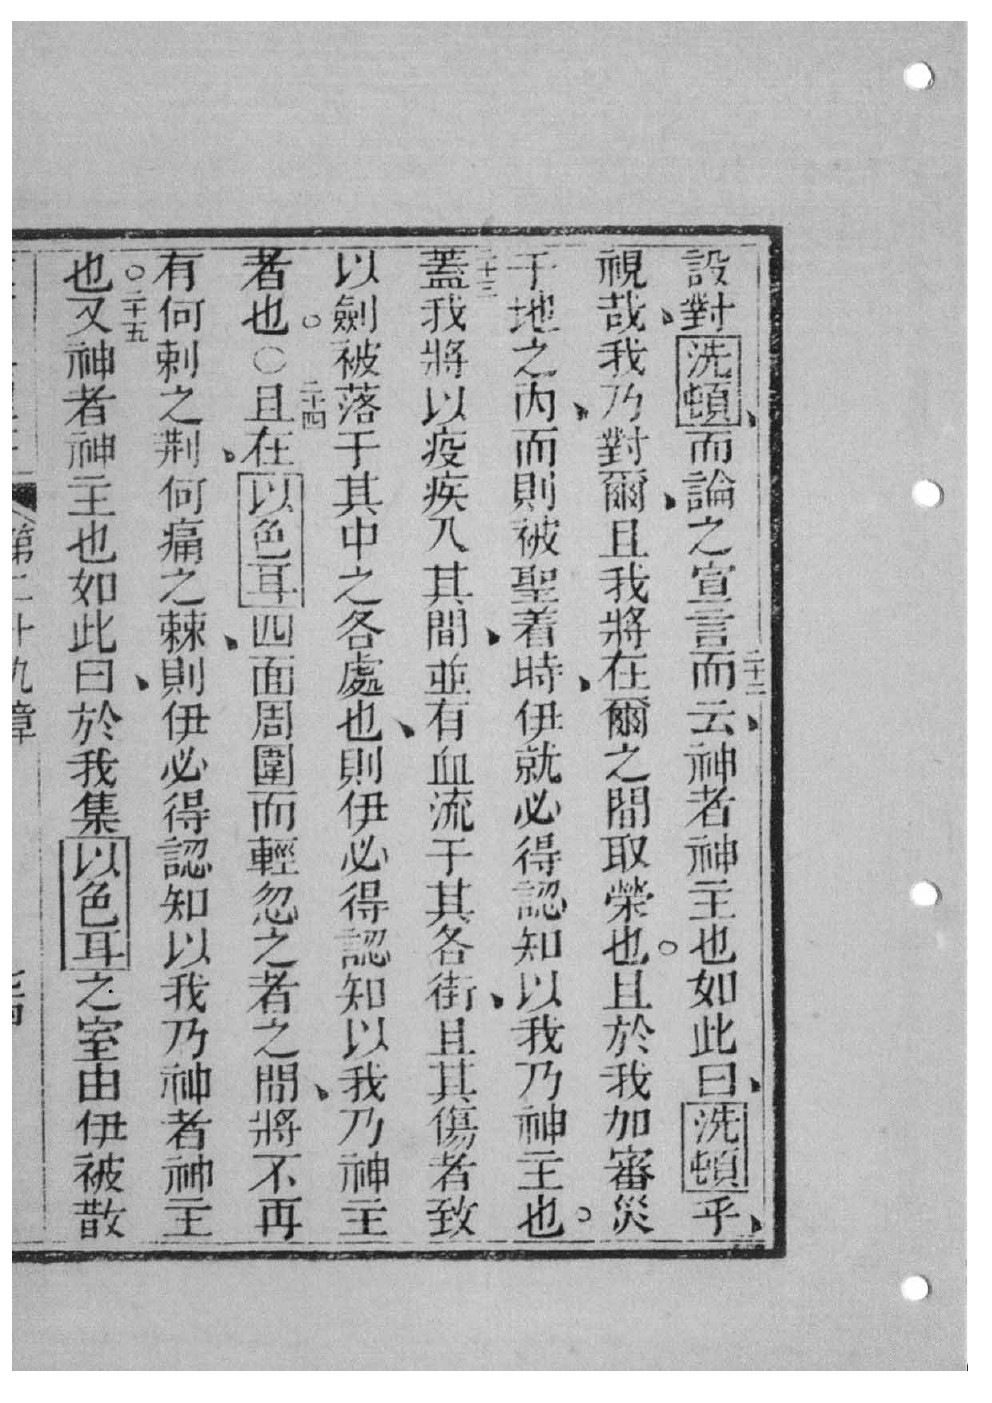 設對洗頓、而論之宣言而二十二云、神者神主也如此曰、洗頓乎、
視哉、我乃對爾、且我將在爾之間取榮也。且於我加審災
于地之內、而則被聖着時、伊就必得認知以我乃神主也。
二十三蓋我將以疫疾入其間、並有血流于其各街、且其傷者致
以劍被落于其中之各處也、則伊必得認知以我乃神主
者也。○二十四且在以色耳四面周圍而輕忽之者之間、將不再
有何刺之荆、何痛之棘、則伊必得認知以我乃神者神主
也○二十五又神者神主也如此曰、於我集以色耳之室由伊被散
第二十九章